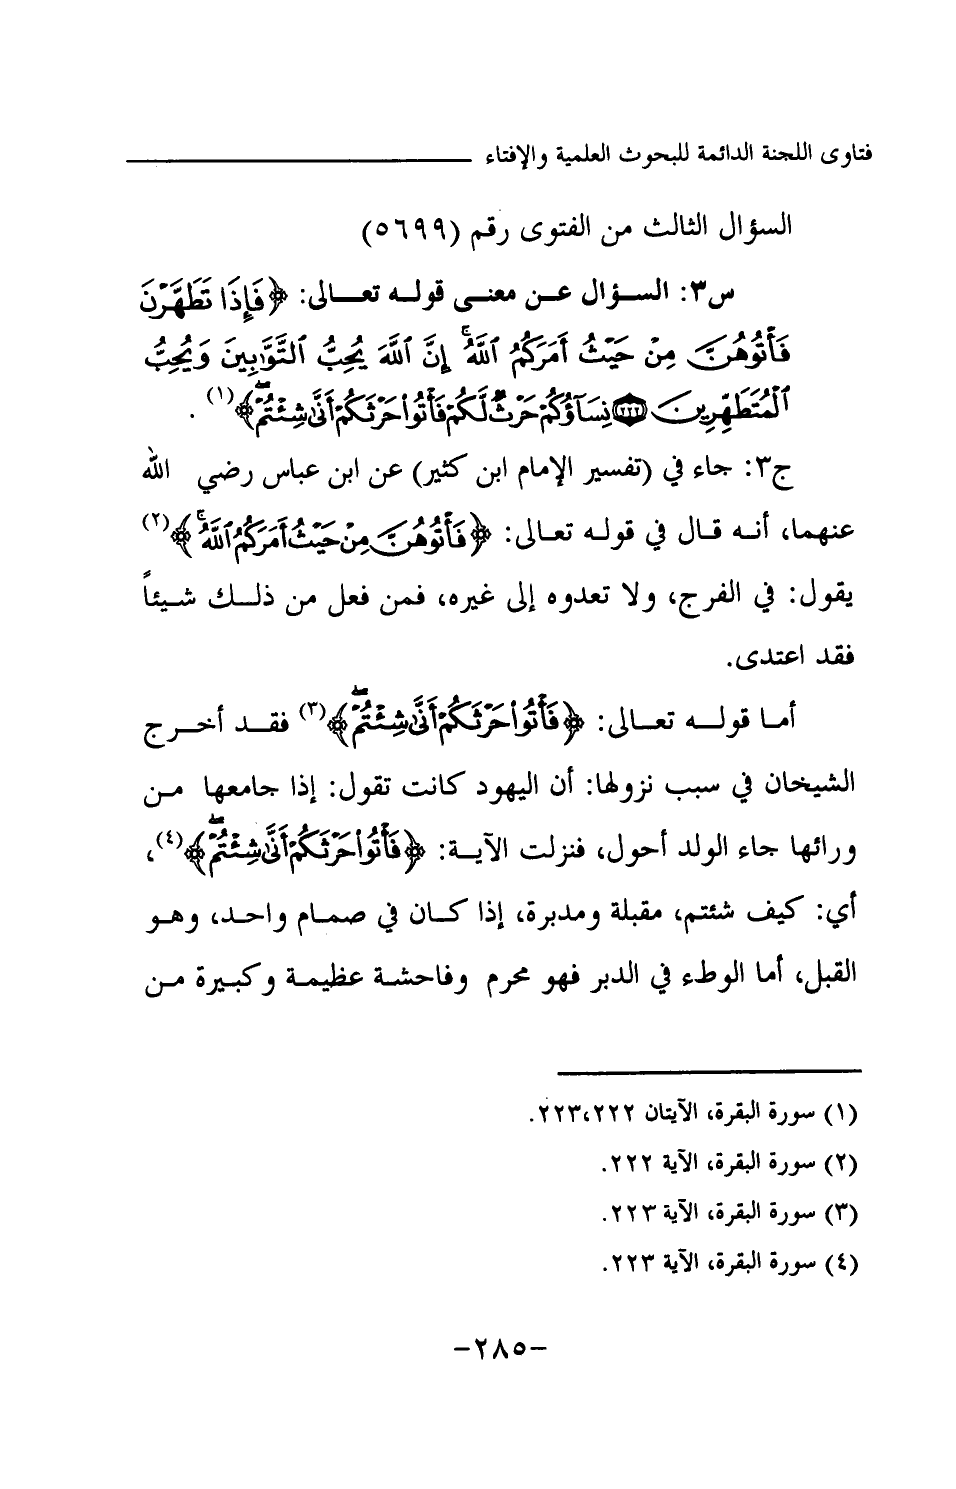 فتاوى اللجنة الدائمة للبحوث العلمية والإفتاء
السؤال الثالث من الفتوى رقم (٥٦٩٩)
س٣: السؤال عن معنى قوله تعالى: ﴿فَإِذَا تَطَهَّرْنَ
فَأْتُوهُنَّ مِنْ حَيْثُ أَمَرَكُمُ ٱللَّهُ ۚ إِنَّ ٱللَّهَ يُحِبُّ ٱلتَّوَّٰبِينَ وَيُحِبُّ
ٱلْمُتَطَهِّرِينَ ۝٢٢٢ نِسَآؤُكُمْ حَرْثٌ لَّكُمْ فَأْتُوا۟ حَرْثَكُمْ أَنَّىٰ شِئْتُمْ ۖ﴾(١) .
ج٣: جاء في (تفسير الإمام ابن كثير) عن ابن عباس رضي الله
عنهما، أنه قال في قوله تعالى: ﴿فَأْتُوهُنَّ مِنْ حَيْثُ أَمَرَكُمُ ٱللَّهُ ۚ﴾(٢)
يقول: في الفرج، ولا تعدوه إلى غيره، فمن فعل من ذلك شيئاً
فقد اعتدى.
أما قوله تعالى: ﴿فَأْتُوا۟ حَرْثَكُمْ أَنَّىٰ شِئْتُمْ ۖ﴾(٣) فقد أخرج
الشيخان في سبب نزولها: أن اليهود كانت تقول: إذا جامعها من
ورائها جاء الولد أحول، فنزلت الآية: ﴿فَأْتُوا۟ حَرْثَكُمْ أَنَّىٰ شِئْتُمْ ۖ﴾(٤)،
أي: كيف شئتم، مقبلة ومدبرة، إذا كان في صمام واحد، وهو
القبل، أما الوطء في الدبر فهو محرم وفاحشة عظيمة وكبيرة من
(١) سورة البقرة، الآيتان ٢٢٢،٢٢٣.
(٢) سورة البقرة، الآية ٢٢٢.
(٣) سورة البقرة، الآية ٢٢٣.
(٤) سورة البقرة، الآية ٢٢٣.
-٢٨٥-